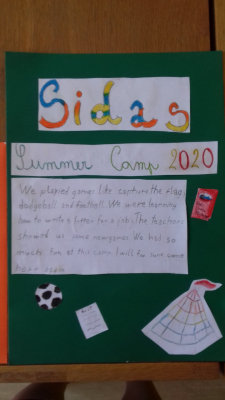 Sidas
Summer Camp 2020
We played games like capture the flag,
dodgeball and football. We were learning
how to write a letter for a job. The teachers
showed us some new games. We had so
much fun at this camp. I will for sure come
here again